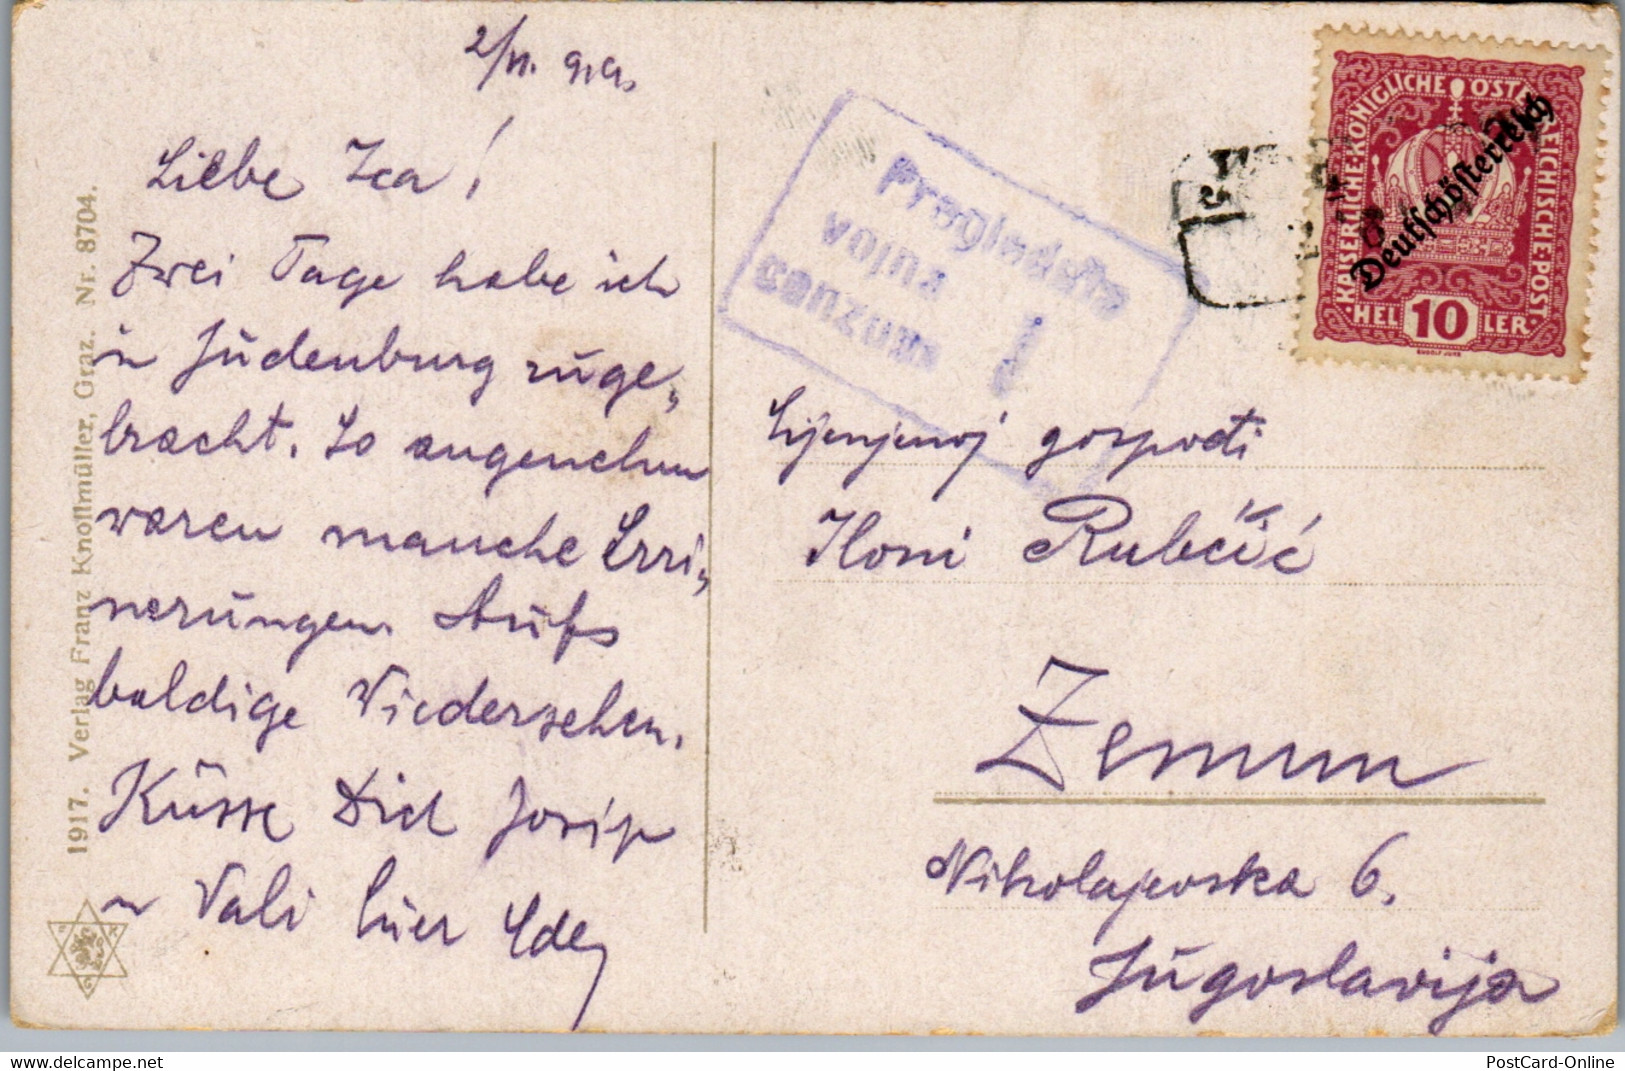 2/VI. 919.
Liebe Ica!
Zwei Tage habe ich
in Judenburg zuge„
bracht. So angenehm
waren manche Erri„
nerungen. Aufs
baldige Wiedersehen.
Küsse Dich Josip
Vali hier Ede
1917. Verlag Franz Knollmüller, Graz. Nr. 8704.
Pregledala
vojna
cenzura !
KAISERLICHE·KÖNIGLICHE ÖSTERREICHISCHE·POST·
Deutschösterreich
HEL 10 LER
RUDOLF JUNK
Cijenjenoj gospođi
Iloni Rubčić
Zemun
Nikolajevska 6.
Jugoslavija
delcampe.net
thomas
PostCard-Online